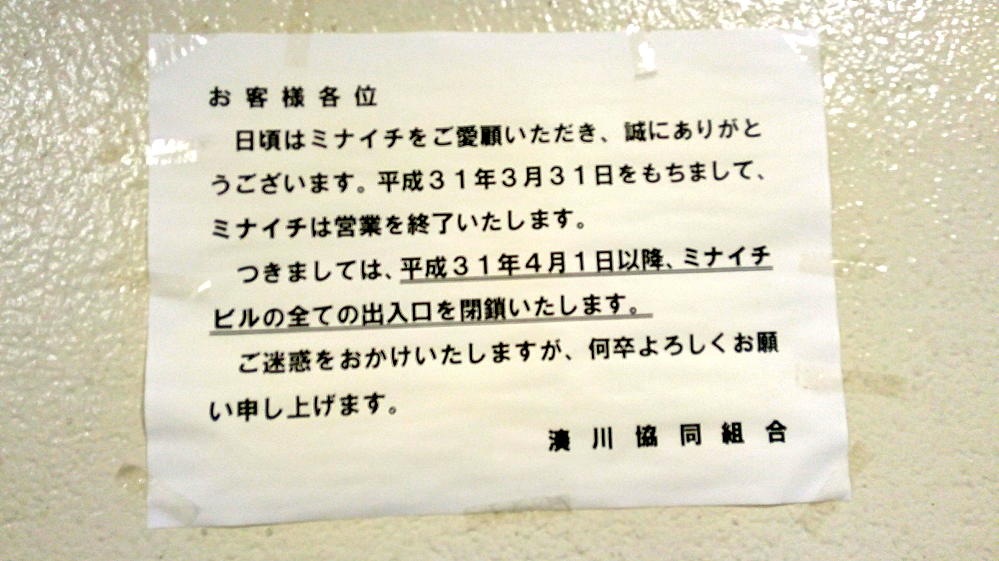 お客様各位
日頃はミナイチをご愛顧いただき、誠にありがと
うございます。平成31年3月31日をもちまして、
ミナイチは営業を終了いたします。
つきましては、平成31年4月1日以降、ミナイチ
ビルの全ての出入口を閉鎖いたします。
ご迷惑をおかけいたしますが、何卒よろしくお願
い申し上げます。
湊川協同組合